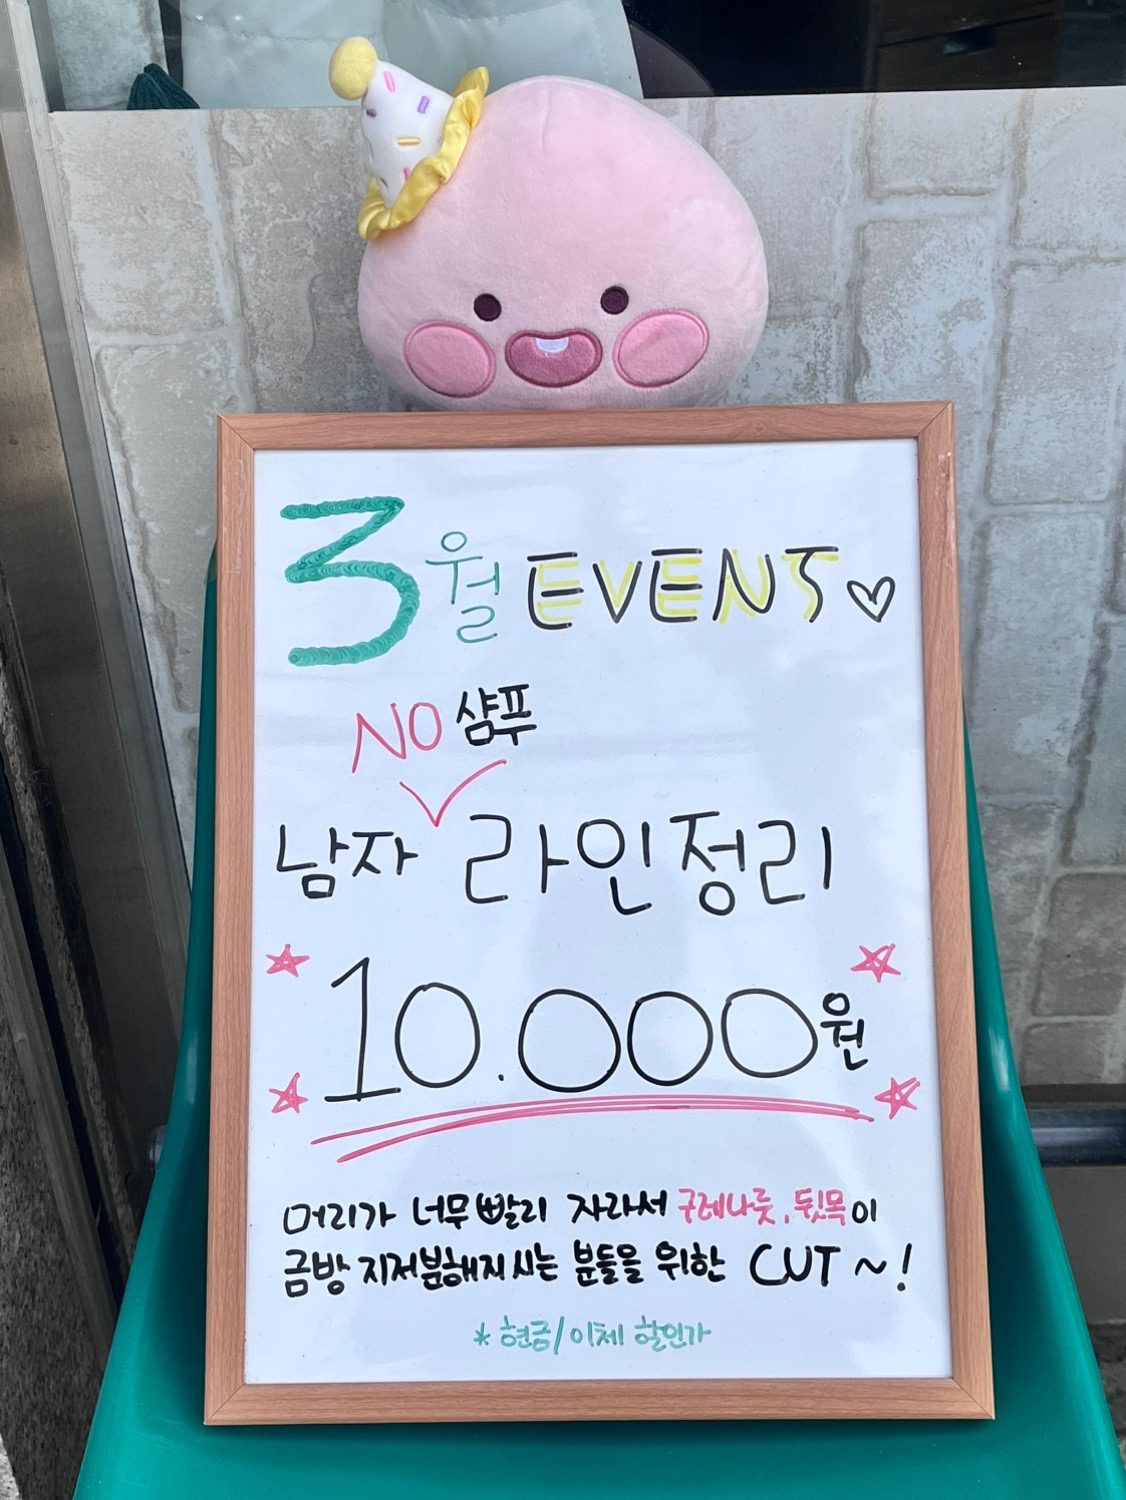 3월 EVENT♡
NO 샴푸
남자 라인정리
10.000원
머리가 너무 빨리 자라서 구레나룻, 뒷목이
금방 지저분해지시는 분들을 위한 CUT ~!
* 현금/이체 할인가